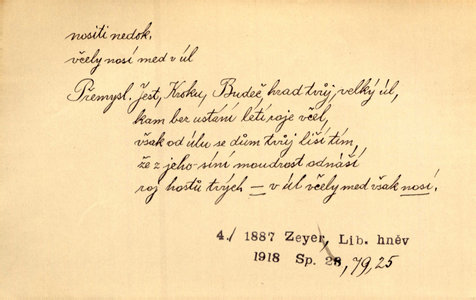 nositi nedok.
včely nosí med v úl
Přemysl. Jest, Kroku, Budeč, hrad tvůj, velký úl,
kam bez ustání létí roje včel,
však od úlu se dům tvůj liší tím,
že z jeho síní moudrost odnáší
roj hostů tvých – v úl včely med však nosí.
4./ 1887 Zeyer, Lib. hněv
1918 Sp. 28, 79, 25